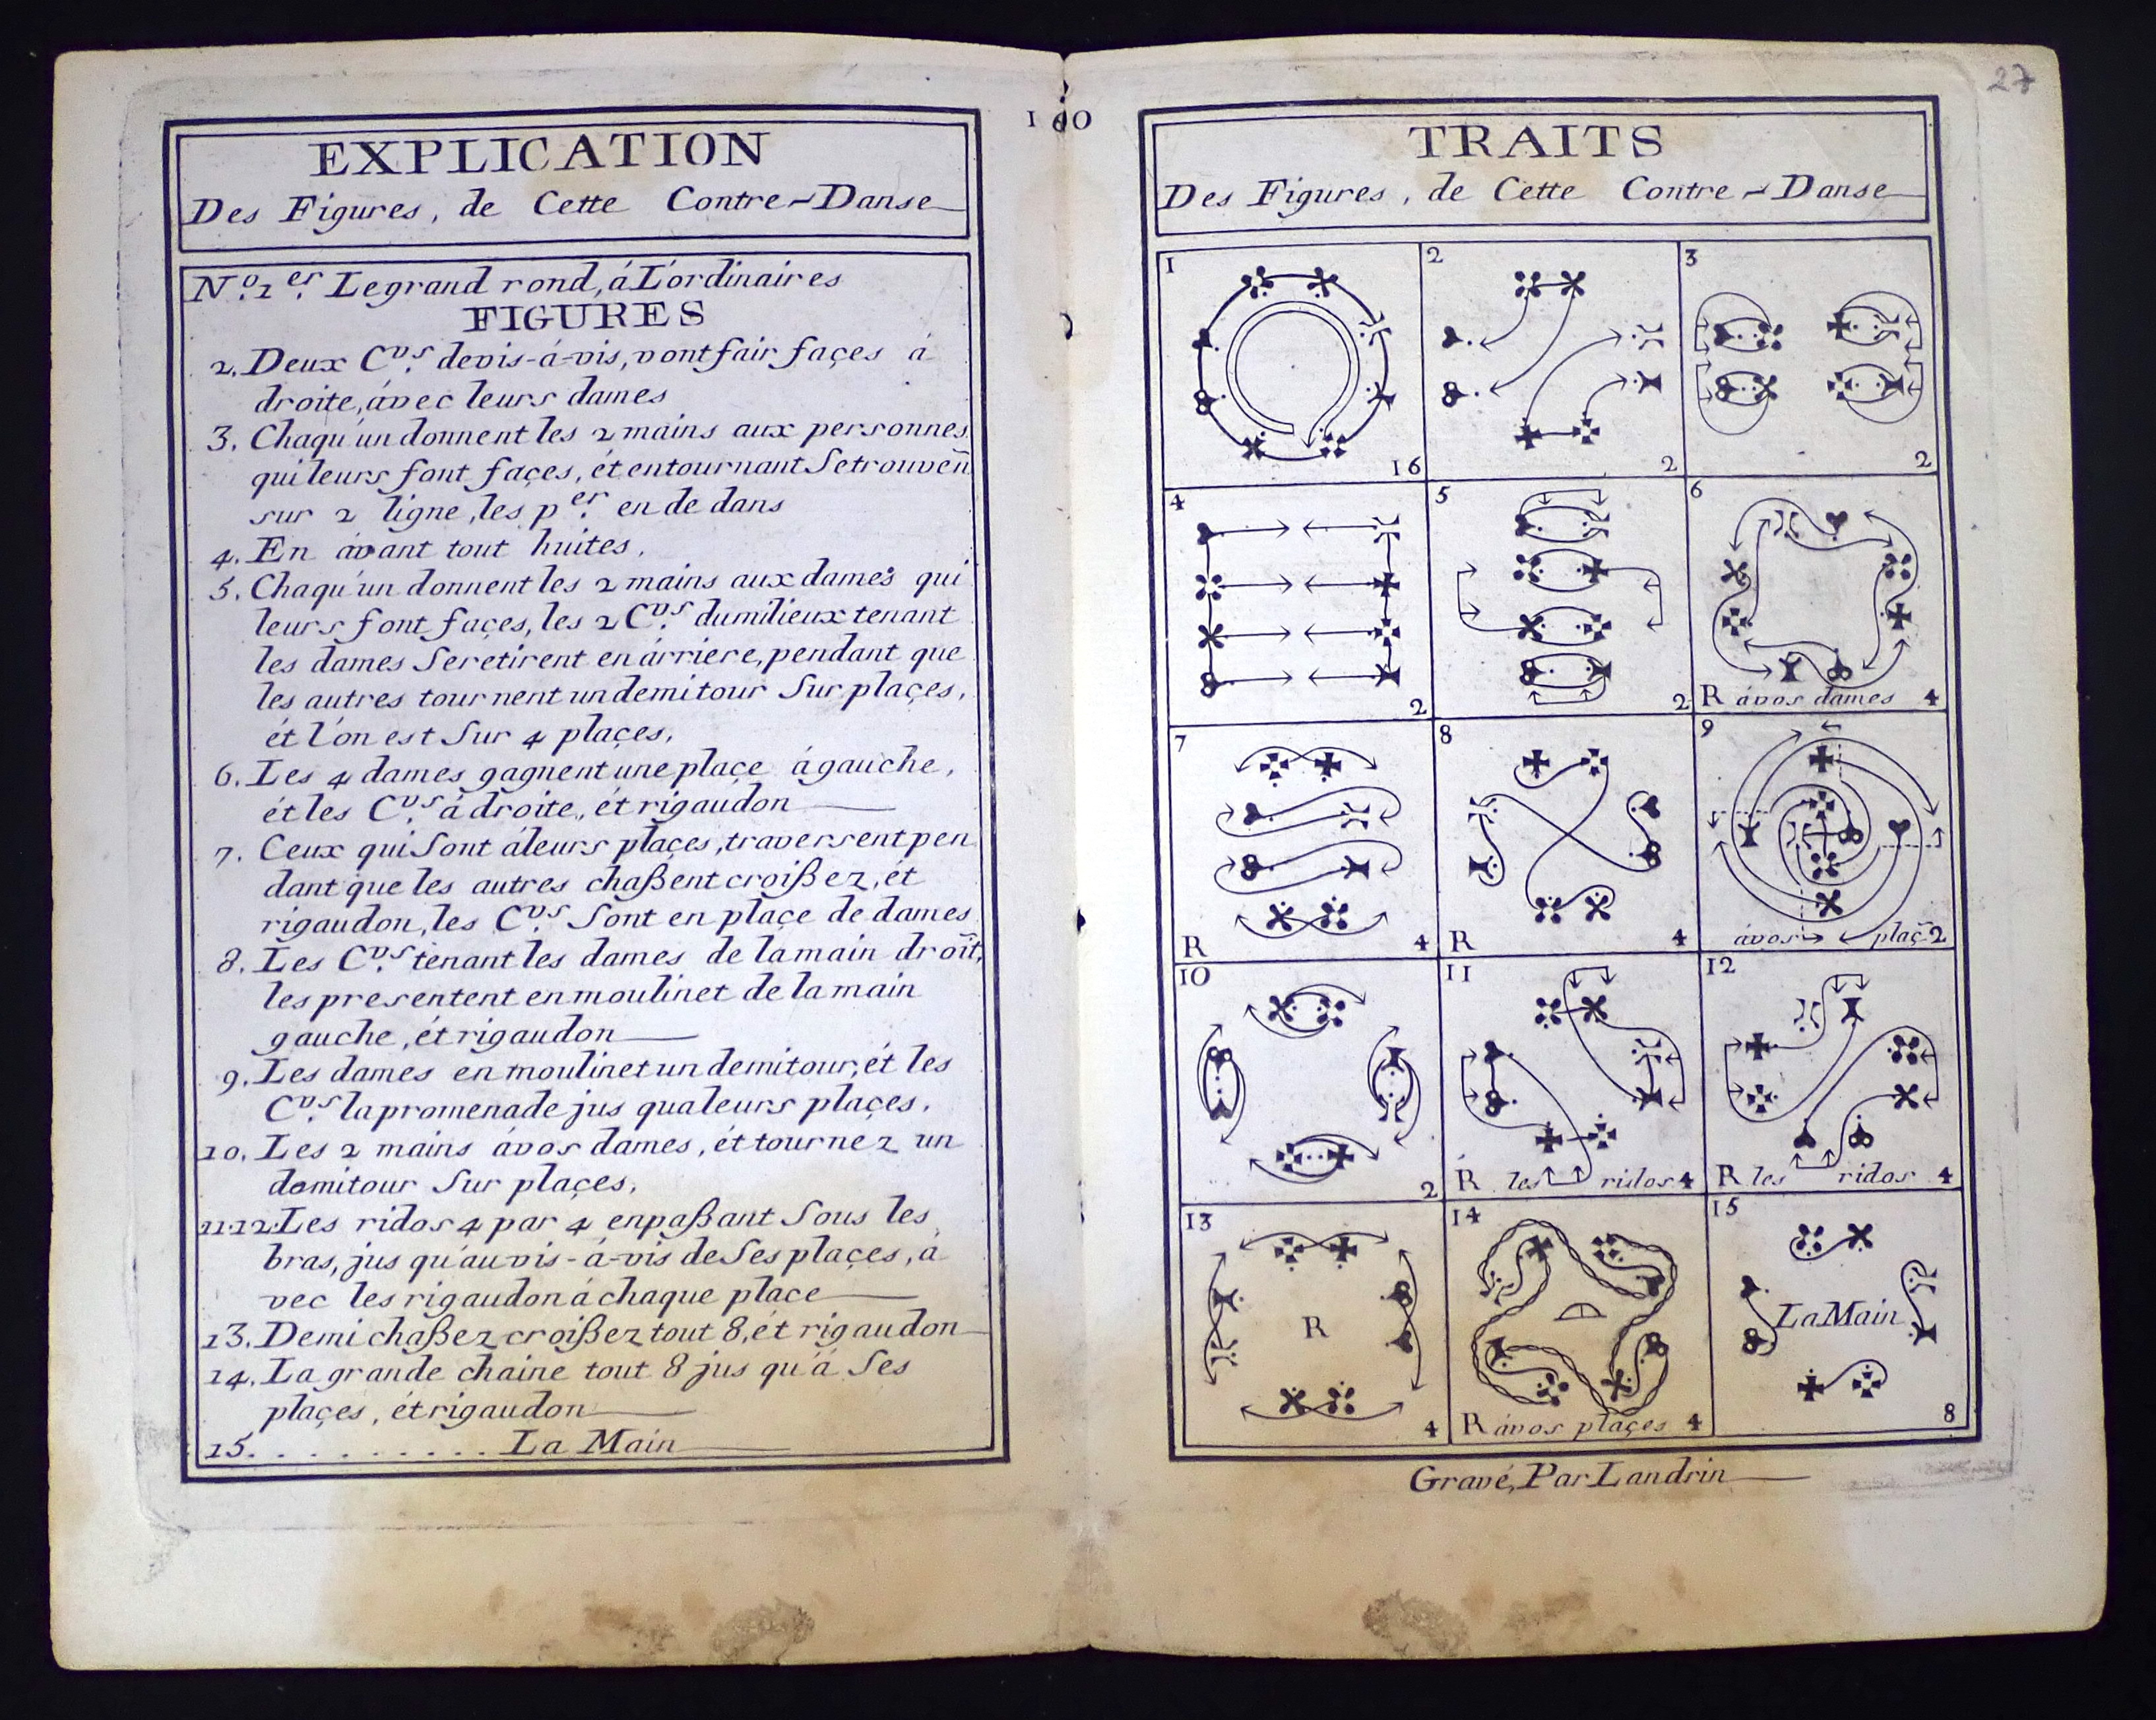 EXPLICATION
Des Figures, de Cette Contre-Danse
N.º 1.er Le grand rond, á L'ordinaires
FIGURES
2. Deux C.vs devis-á-vis, vont fair façes á
droite, ávec leurs dames
3. Chaqu'un donnent les 2 mains aux personnes
qui leurs font façes, ét entournant Se trouveñ
sur 2 ligne, les p.er en de dans
4. En ávant tout huites,
5. Chaqu'un donnent les 2 mains aux dames qui
leurs font façes, les 2 C.vs du milieux tenant
les dames Seretirent en árriere, pendant que
les autres tournent un demi tour Sur plaçes,
ét l'ón est Sur 4 plaçes,
6. Les 4 dames gagnent une plaçe á gauche,
ét les C.vs á droite, ét rigaudon
7. Ceux qui Sont áleurs plaçes, traversent pen
dant que les autres chaßent croißez, ét
rigaudon, les C.vs Sont en plaçe de dames
8. Les C.vs tenant les dames de la main droit,
les presentent en moulinet de la main
gauche, ét rigaudon
9. Les dames en moulinet un demi tour, ét les
C.vs la promenade jus qua leurs plaçes,
10. Les 2 mains ávos dames, ét tournez un
domitour Sur plaçes,
11.12. Les ridos 4 par 4 en paßant Sous les
bras, jus qu'áu vis-á-vis de Ses plaçes, á
vec les rigaudon á chaque place
13. Demi chaßez croißez tout 8, ét rigaudon
14. La grande chaine tout 8 jus qu'á Ses
plaçes, ét rigaudon
15. . . . . . . . . . La Main
27
TRAITS
Des Figures, de Cette Contre-Danse
1
16
2
2
3
2
4
2
5
2
6
R ávos dames 4
7
R 4
8
R 4
9
ávos plaç 2
10
2
11
R les ridos 4
12
R les ridos 4
13
R
4
14
R ávos plaçes 4
15
La Main
8
Gravé, Par Landrin